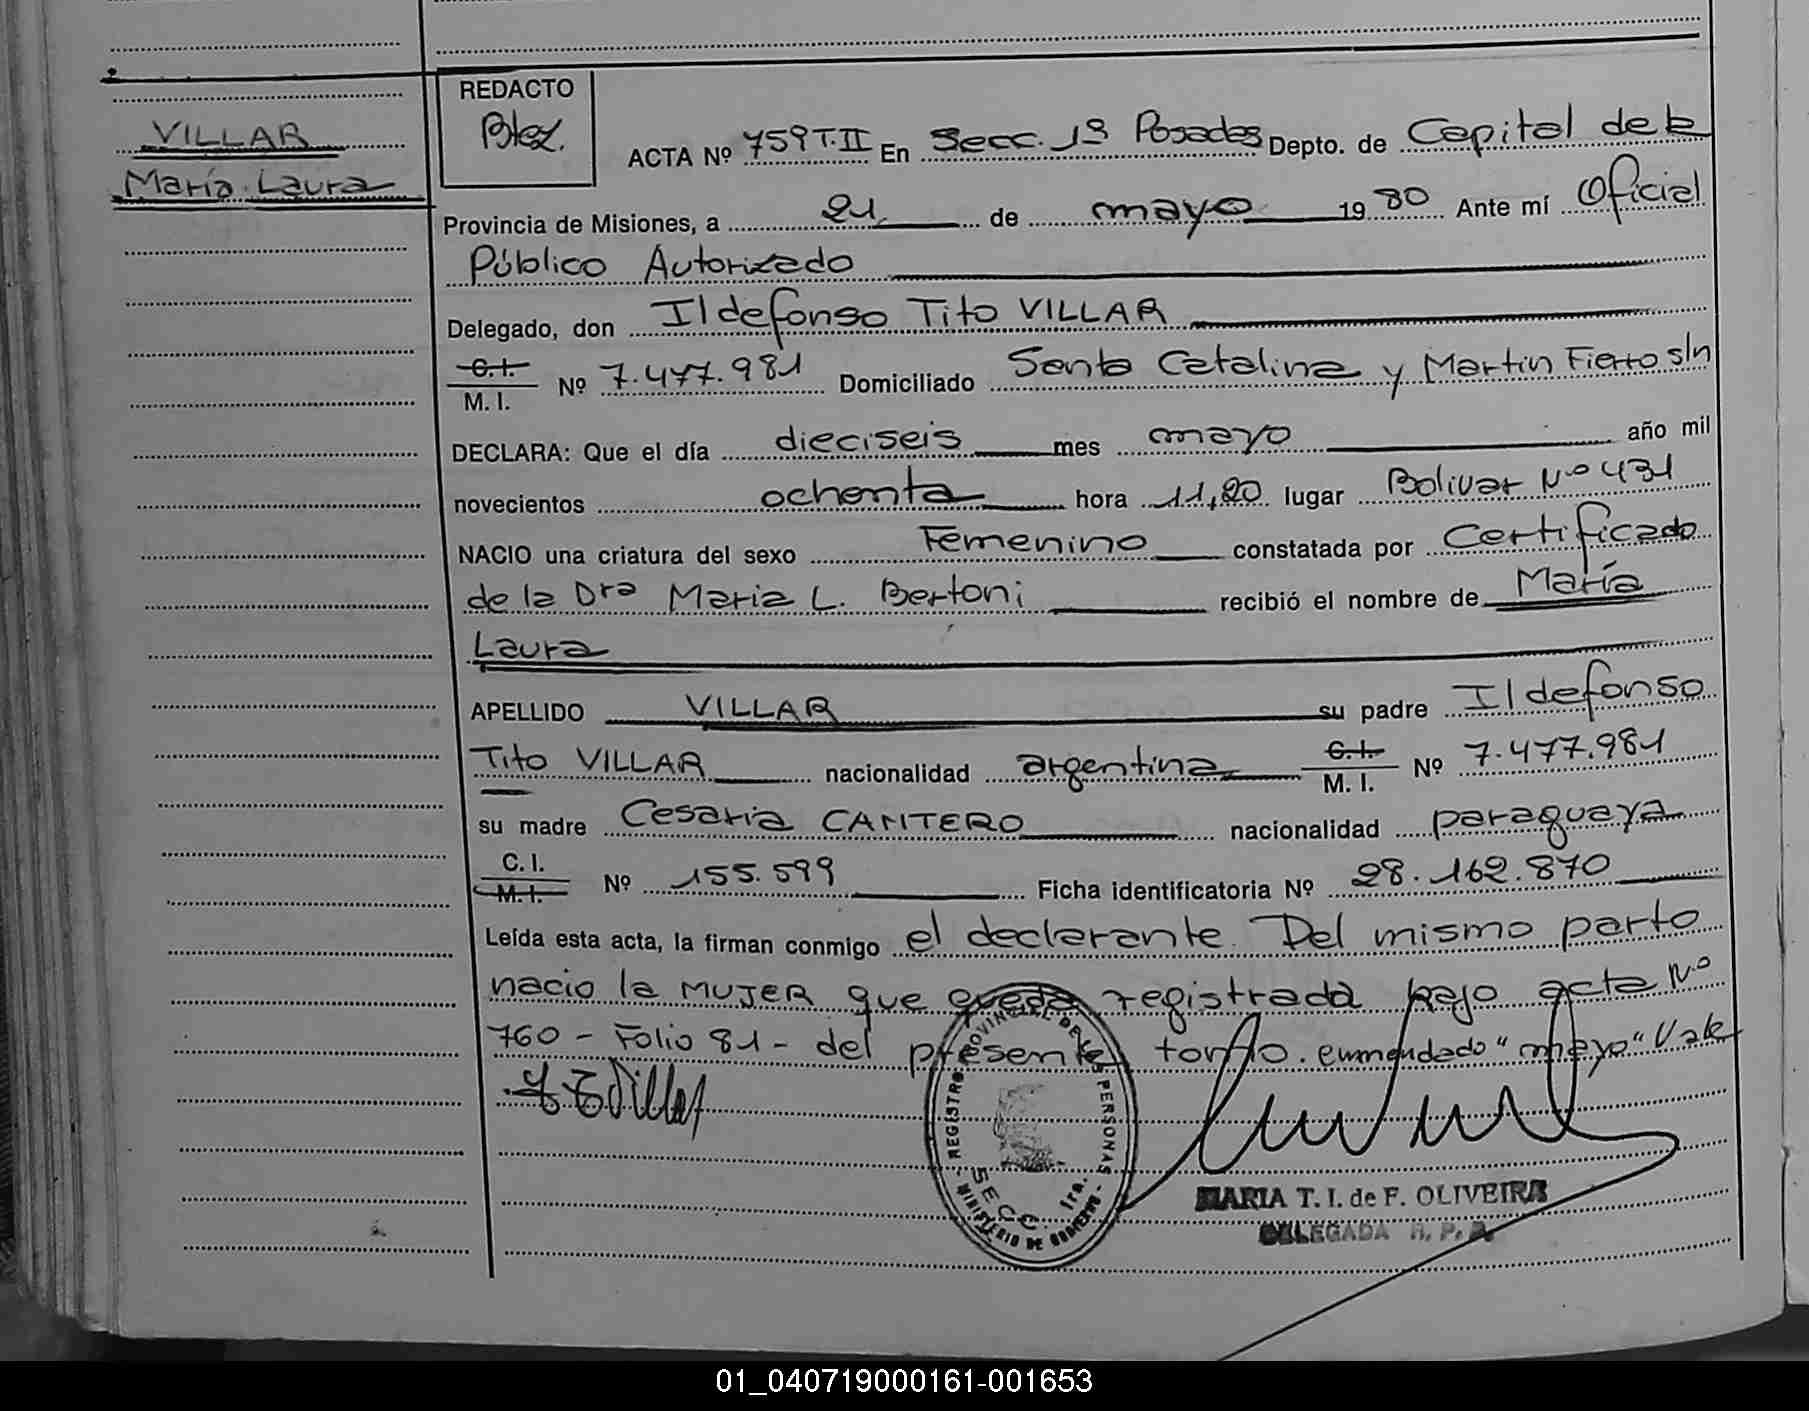 VILLAR
María Laura
REDACTO
ACTA Nº 759 T. II En Secc. 1ª Posadas Depto. de Capital de la
Provincia de Misiones, a 21 de mayo 1980 Ante mí Oficial
Público Autorizado
Delegado, don Ildefonso Tito VILLAR
C.I.
M. I. Nº 7.477.981 Domiciliado Santa Catalina y Martin Fierro s/n
DECLARA: Que el día dieciseis mes mayo año mil
novecientos ochenta hora 11,20 lugar Bolivar Nº 431
NACIO una criatura del sexo Femenino constatada por Certificado
de la Dra Maria L. Bertoni recibió el nombre de María
Laura
APELLIDO VILLAR su padre Ildefonso
Tito VILLAR nacionalidad argentina C.I. M. I. Nº 7.477.981
su madre Cesaria CANTERO nacionalidad paraguaya
C. I.
M. I. Nº 155.599 Ficha identificatoria Nº 28.162.870
Leída esta acta, la firman conmigo el declarante. Del mismo parto
nacio la MUJER que queda registrada bajo acta Nº
760 - Folio 81 - del presente tomo. enmendado "mayo" Vale
REGISTRO PROVINCIAL DE LAS PERSONAS
SECC. 1ra.
MINISTERIO DE GOBIERNO
MARIA T. I. de F. OLIVEIRA
DELEGADA R. P. P.
01_040719000161-001653